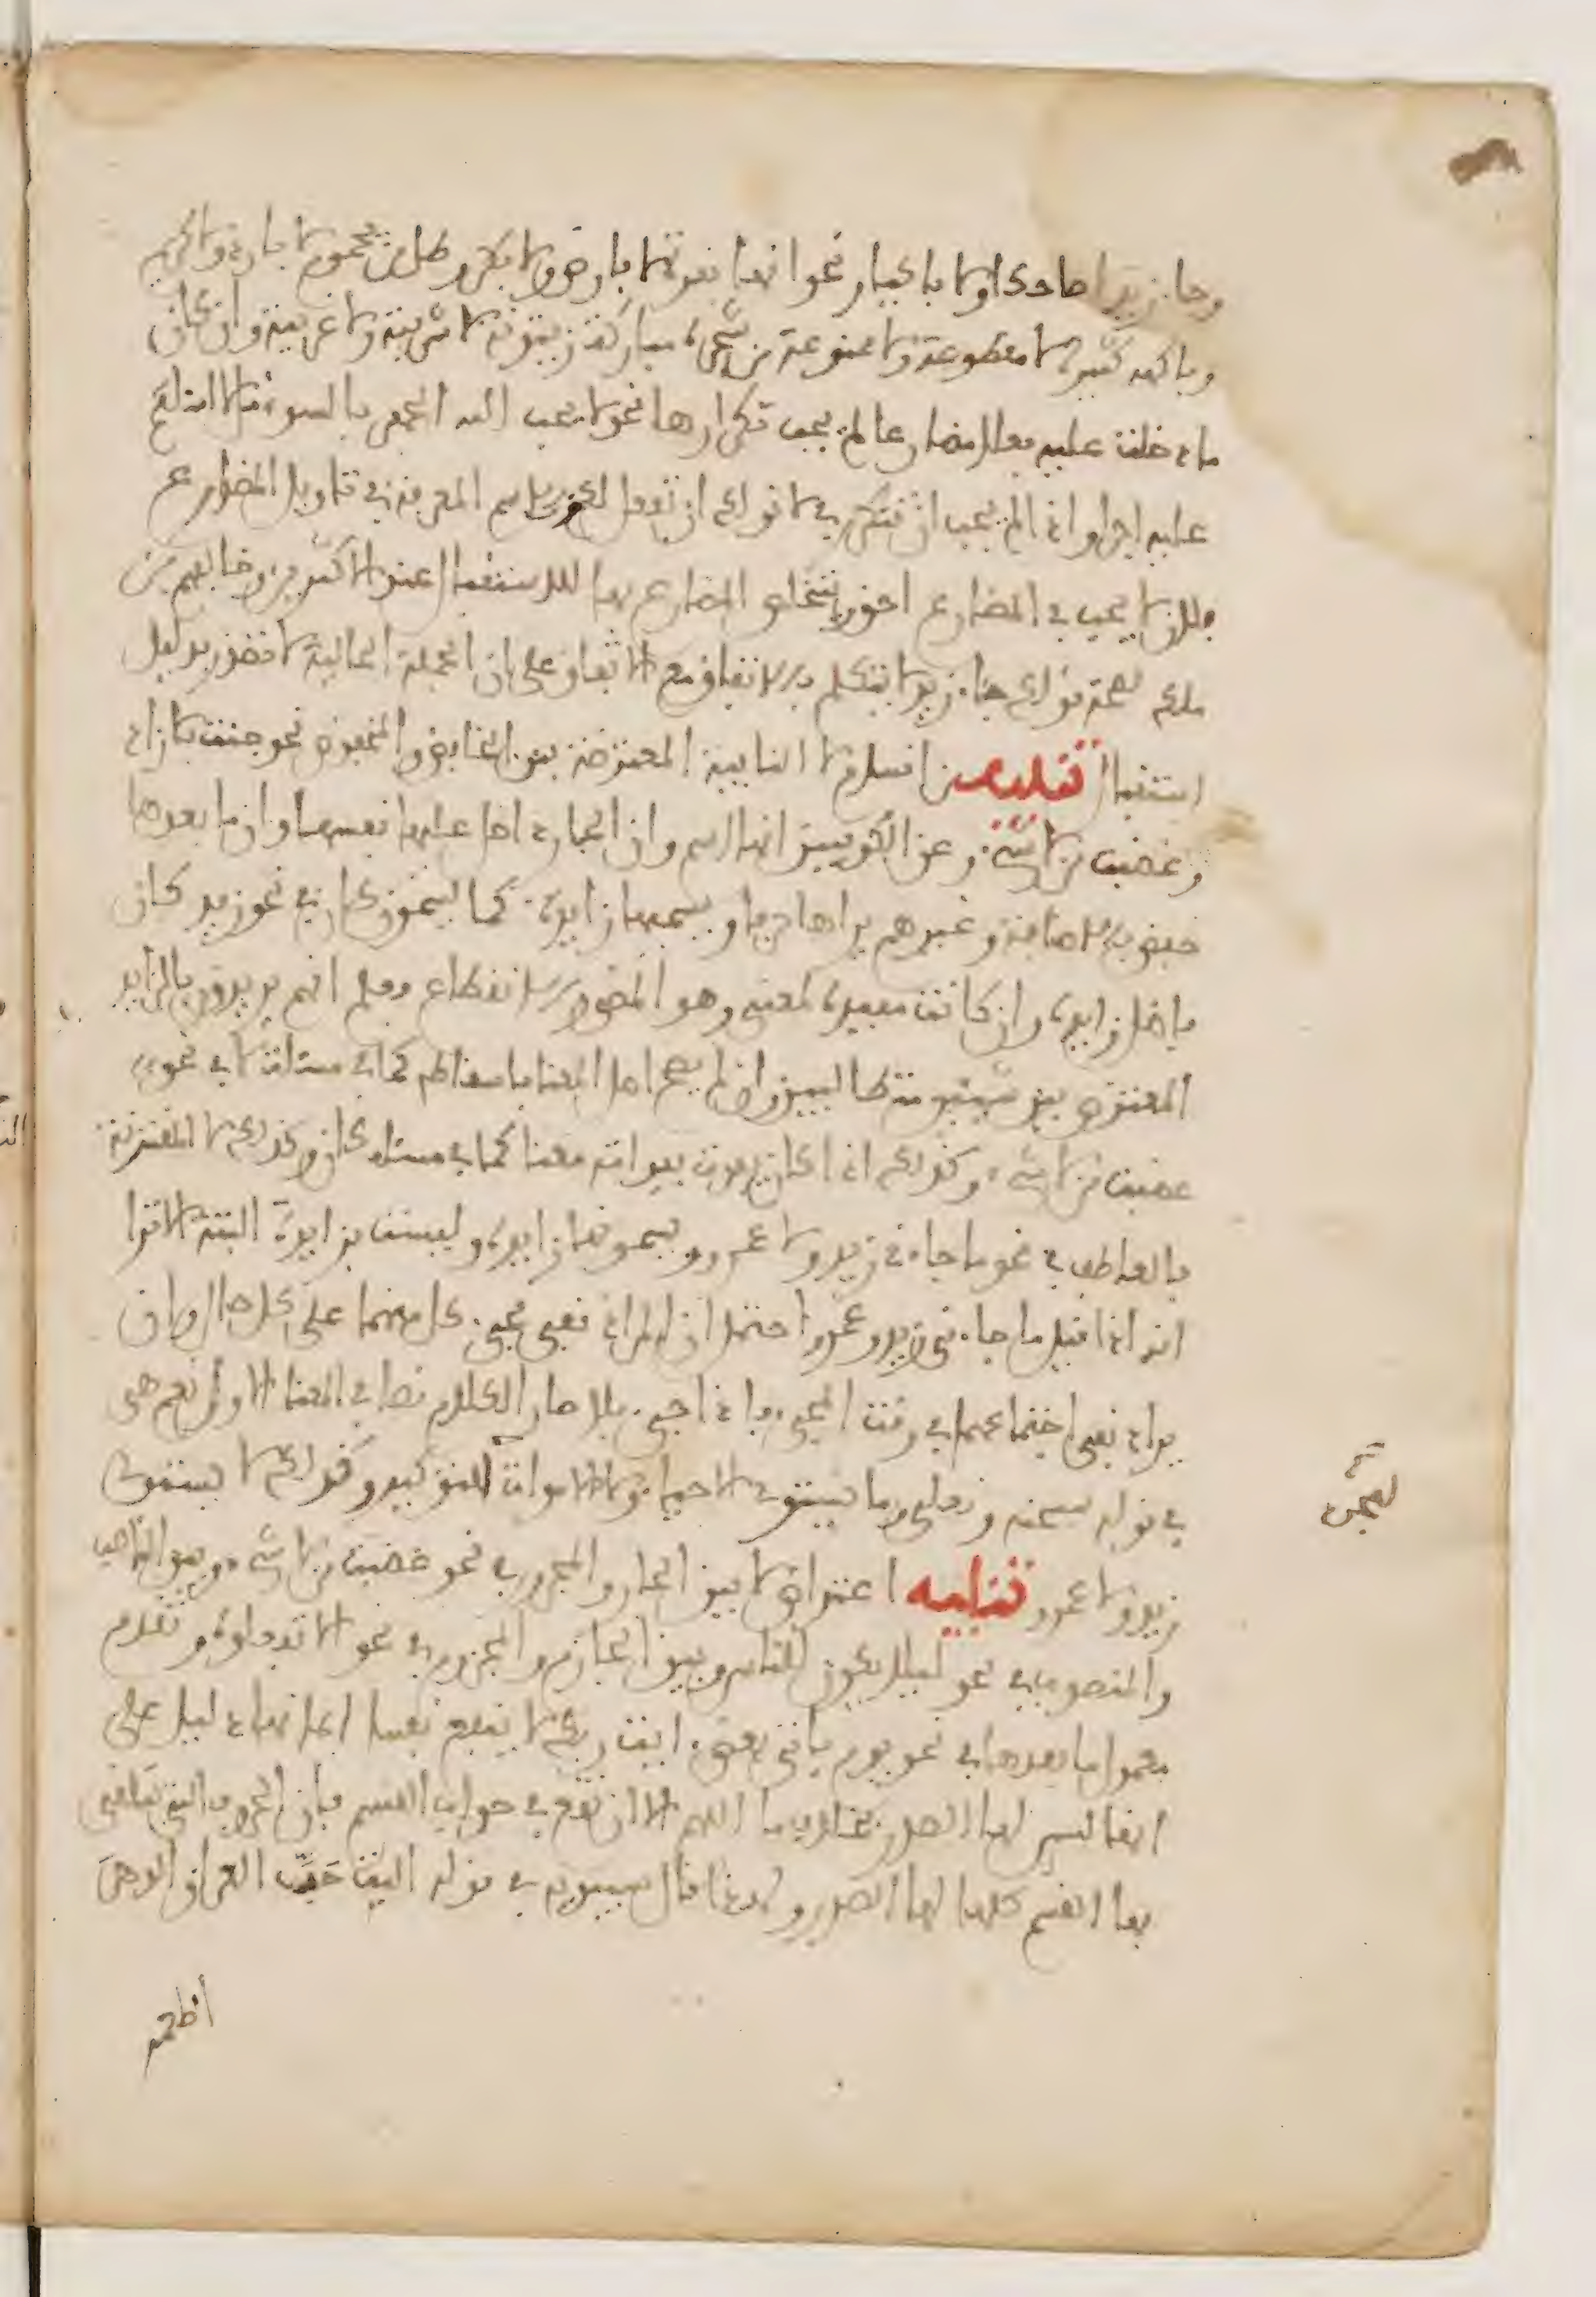 وجاء زيد لا ضاحكا ولا باكيا ونحو انها بقرة لا فارض ولا بكر وظل من يحموم لا بارد ولا كريم
وفاكهة كثيرة لا مقطوعة ولا ممنوعة من شجرة مباركة زيتونة لا شرقية ولا غربية وان كان
ما دخلت عليه فعلا مضارعا لم يجب تكرارها نحو لا يحب الله الجهر بالسوء قل لا اسئلكم
عليه اجرا واذا لم يجب ان تتكرر في لا نولك ان تفعل لكون الاسم المعرفة في تاويل المضارع
فلان لا يجب في المضارع احق ويتخلص المضارع بها للاستقبال عند الاكثرين وخالفهم ابن
ملك لصحة قولك جاء زيد لا يتكلم بالاتفاق مع الاتفاق على ان الجملة الحالية لا تصدر بدليل
استقبال تنبيه من اقسام لا النافية المعترضة بين الخافض والمخفوض نحو جئت بلا زاد
وغضبت من لا شيء وعن الكوفيين انها اسم وان الجار دخل عليها نفسها وان ما بعدها
خفض بالاضافة وغيرهم يراها حرفا ويسميها زايدة كما يسمون كان في نحو زيد كان
فاضل زايدة وان كانت مفيدة لمعنى وهو المضي والانقطاع فعلم انهم يريدون بالزايد
المعترض بين شيئين متطالبين وان لم يصح اصل المعنا باسقاطه كما في مسئلة لا في نحو
غضبت من لا شيء وكذلك اذا كان يفوت بفواته معنا كما في مسئلة كان وكذلك لا المقترنة
بالعاطف في نحو ما جاءني زيد ولا عمرو ويسمونها زايدة وليست بزايدة البتة الا ترا
انه اذا قيل ما جاءني زيد وعمرو احتمل ان المراد نفي مجيء كل منهما على كل حال وان
يراد نفي اجتماعهما في وقت المجيء فاذا جيء بلا صار الكلام نصا في المعنا الاول نعم هي
في قوله سبحنه وتعلى وما يستوي الاحياء ولا الاموات للتوكيد وكذلك لا يستوي
زيد ولا عمرو تنبيه اعتراض لا بين الجار والمجرور في نحو غضبت من لا شيء وبين الناصب
والمنصوب في نحو ليلا يكون للناس وبين الجازم والمجزوم في نحو الا تفعلوه وتقدم
معمول ما بعدها في نحو يوم ياتي بعض ايت ربك لا ينفع نفسا ايمانها دليل على
انها ليس لها الصدر بخلاف ما اللهم الا ان تقع في جواب القسم فان الحروف التي يتلقى
بها القسم كلها لها الصدر ولهذا قال سيبويه في قوله اليت حب العراق الدهر
اطعمه